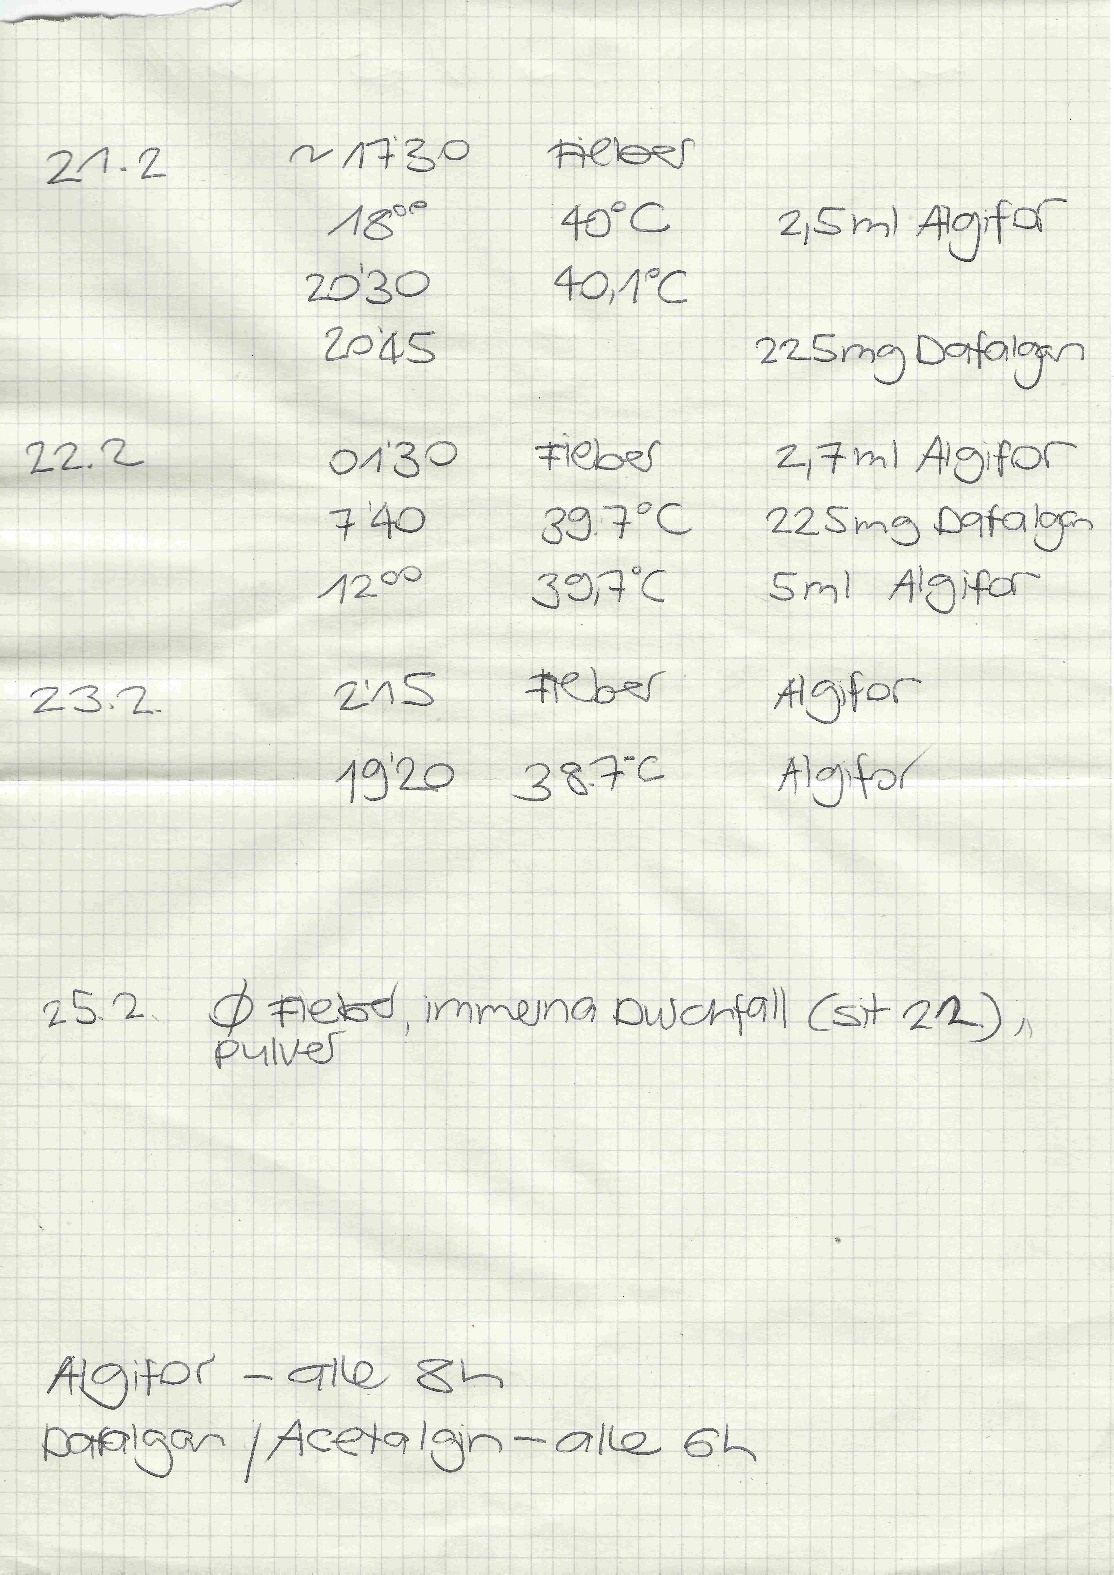 21.2 ~17'30 Fieber
18°° 40°C 2,5ml Algifor
20'30 40,1°C
20'45 225mg Dafalgan
22.2 01'30 Fieber 2,7ml Algifor
7'40 39.7°C 225mg Dafalgan
12°° 39,7°C 5ml Algifor
23.2. 2'15 Fieber Algifor
19'20 38.7°C Algifor
25.2. Ø Fieber, immerna Durchfall (sit 22.),
pulver
Algifor – alle 8h
Dafalgan / Acetalgin – alle 6h